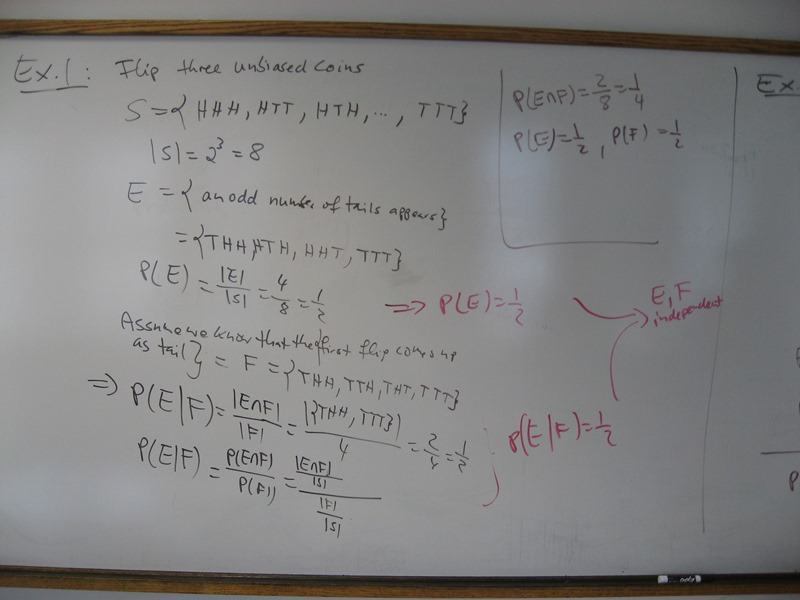 Ex.1: Flip three unbiased coins
S={HHH, HTT, HTH, ..., TTT}
|S|=2³=8
E = { an odd number of tails appears}
={THH, HTH, HHT, TTT}
P(E)=|E|/|S|=4/8=1/2
⇒ P(E)=1/2
Assume we know that the {first flip comes up
as tail} = F = {THH, TTH, THT, TTT}
⇒ P(E|F)=|E∩F|/|F|=|{THH, TTT}|/4=2/4=1/2
P(E|F)=P(E∩F)/P(F)=(|E∩F|/|S|)/(|F|/|S|)
P(E|F)=1/2
E,F
independent
P(E∩F)=2/8=1/4
P(E)=1/2, P(F)=1/2
Ex.
P